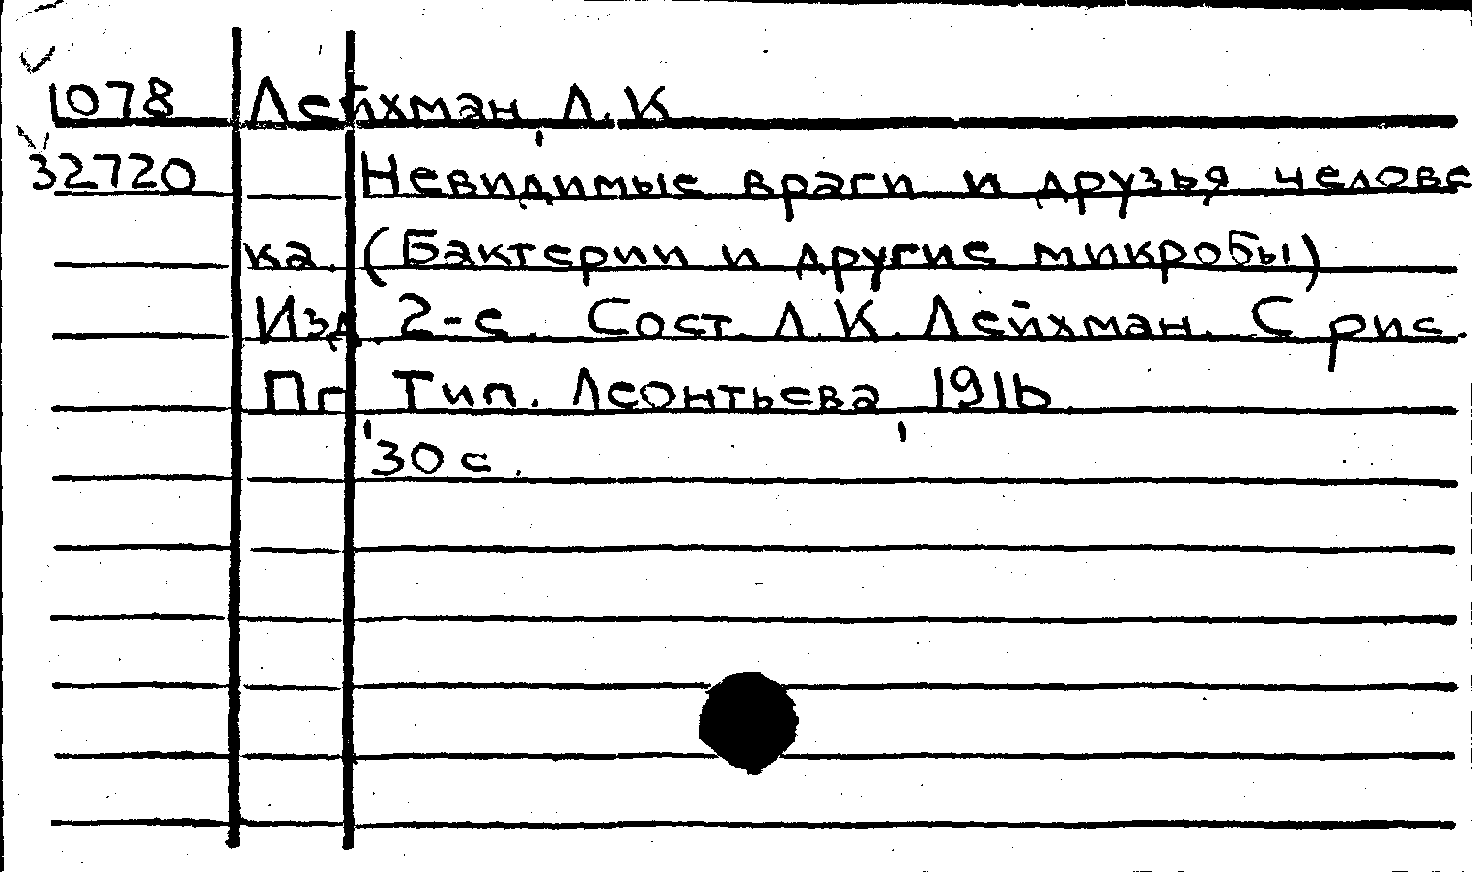 1078 Лейхман, Л.К.
32720 Невидимые враги и друзья челове
ка. (Бактерии и другие микробы)
Изд. 2-е. Сост. Л.К. Лейхман. С рис.
Пг, Тип. Леонтьева, 1916
30 с.